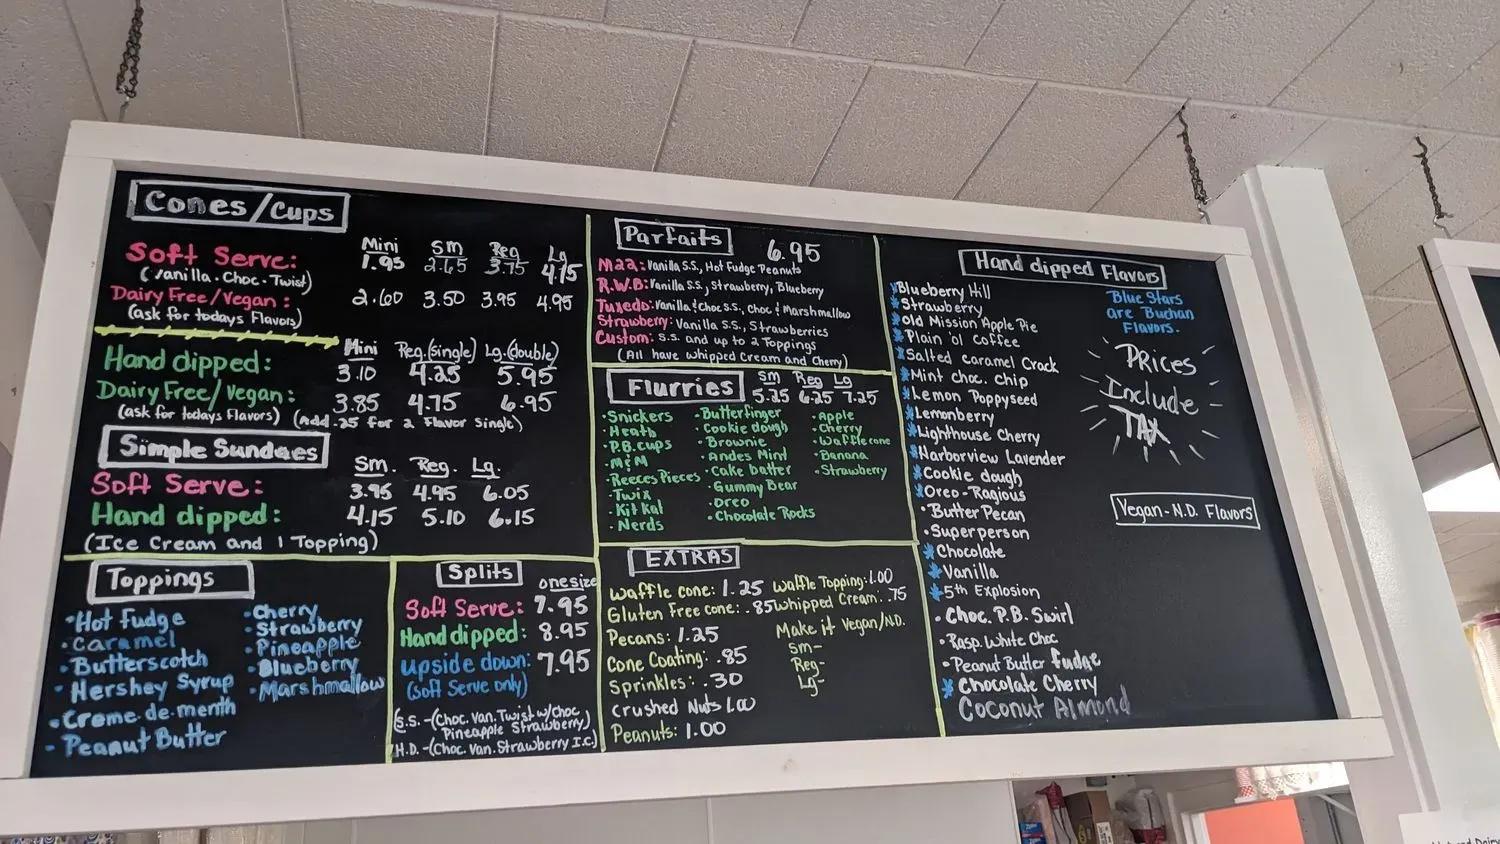 Cones/Cups
Mini Sm Reg Lg
Soft Serve: 1.95 2.65 3.75 4.75
(Vanilla. Choc. Twist)
Dairy Free/Vegan: 2.60 3.50 3.95 4.95
(ask for todays Flavors)
Mini Reg.(single) Lg.(double)
Hand dipped: 3.10 4.25 5.95
Dairy Free/Vegan: 3.85 4.75 6.95
(ask for todays Flavors) (Add .25 for 2 Flavor Single)
Simple Sundaes
Sm. Reg. Lg.
Soft Serve: 3.95 4.95 6.05
Hand dipped: 4.15 5.10 6.15
(Ice Cream and 1 Topping)
Toppings
•Hot fudge
•Caramel
•Butterscotch
•Hershey Syrup
•Creme de menth
•Peanut Butter
•Cherry
•Strawberry
•Pineapple
•Blueberry
•Marshmallow
Splits
one size
Soft Serve: 7.95
Hand dipped: 8.95
upside down: 7.95
(Soft Serve only)
(S.S.-(Choc. Van. Twist w/Choc
Pineapple Strawberry)
H.D.-(Choc. Van. Strawberry I.C.)
Parfaits 6.95
M22: Vanilla S.S., Hot Fudge Peanuts
R.W.B: Vanilla S.S., Strawberry, Blueberry
Tuxedo: Vanilla & Choc S.S., Choc & Marshmallow
Strawberry: Vanilla S.S., Strawberries
Custom: S.S. and up to 2 Toppings
(All have whipped Cream and Cherry)
Flurries
Sm Reg Lg
5.25 6.25 7.25
•Snickers
•Heath
•P.B. cups
•M&M
•Reeces Pieces
•Twix
•Kit Kat
•Nerds
•Butterfinger
•Cookie dough
•Brownie
•Andes Mint
•Cake batter
•Gummy Bear
•Oreo
•Chocolate Rocks
•Apple
•Cherry
•Waffle cone
•Banana
•Strawberry
EXTRAS
Waffle cone: 1.25
Gluten Free cone: .85
Pecans: 1.25
Cone Coating: .85
Sprinkles: .30
Crushed Nuts 1.00
Peanuts: 1.00
Waffle Topping: 1.00
Whipped Cream: .75
Make it Vegan/N.D.
Sm-
Reg-
Lg-
Hand dipped Flavors
Blueberry Hill
Strawberry
Old Mission Apple Pie
Plain 'ol Coffee
Salted Caramel Crack
Mint choc. chip
Lemon Poppyseed
Lemonberry
Lighthouse Cherry
Harborview Lavender
Cookie dough
Oreo-Ragious
•Butter Pecan
•Superperson
Chocolate
Vanilla
5th Explosion
•Choc. P.B. Swirl
•Rasp. White Choc
•Peanut Butter fudge
Chocolate Cherry
Coconut Almond
Blue Stars
are Buchan
Flavors.
Prices
Include
TAX
Vegan-N.D. Flavors